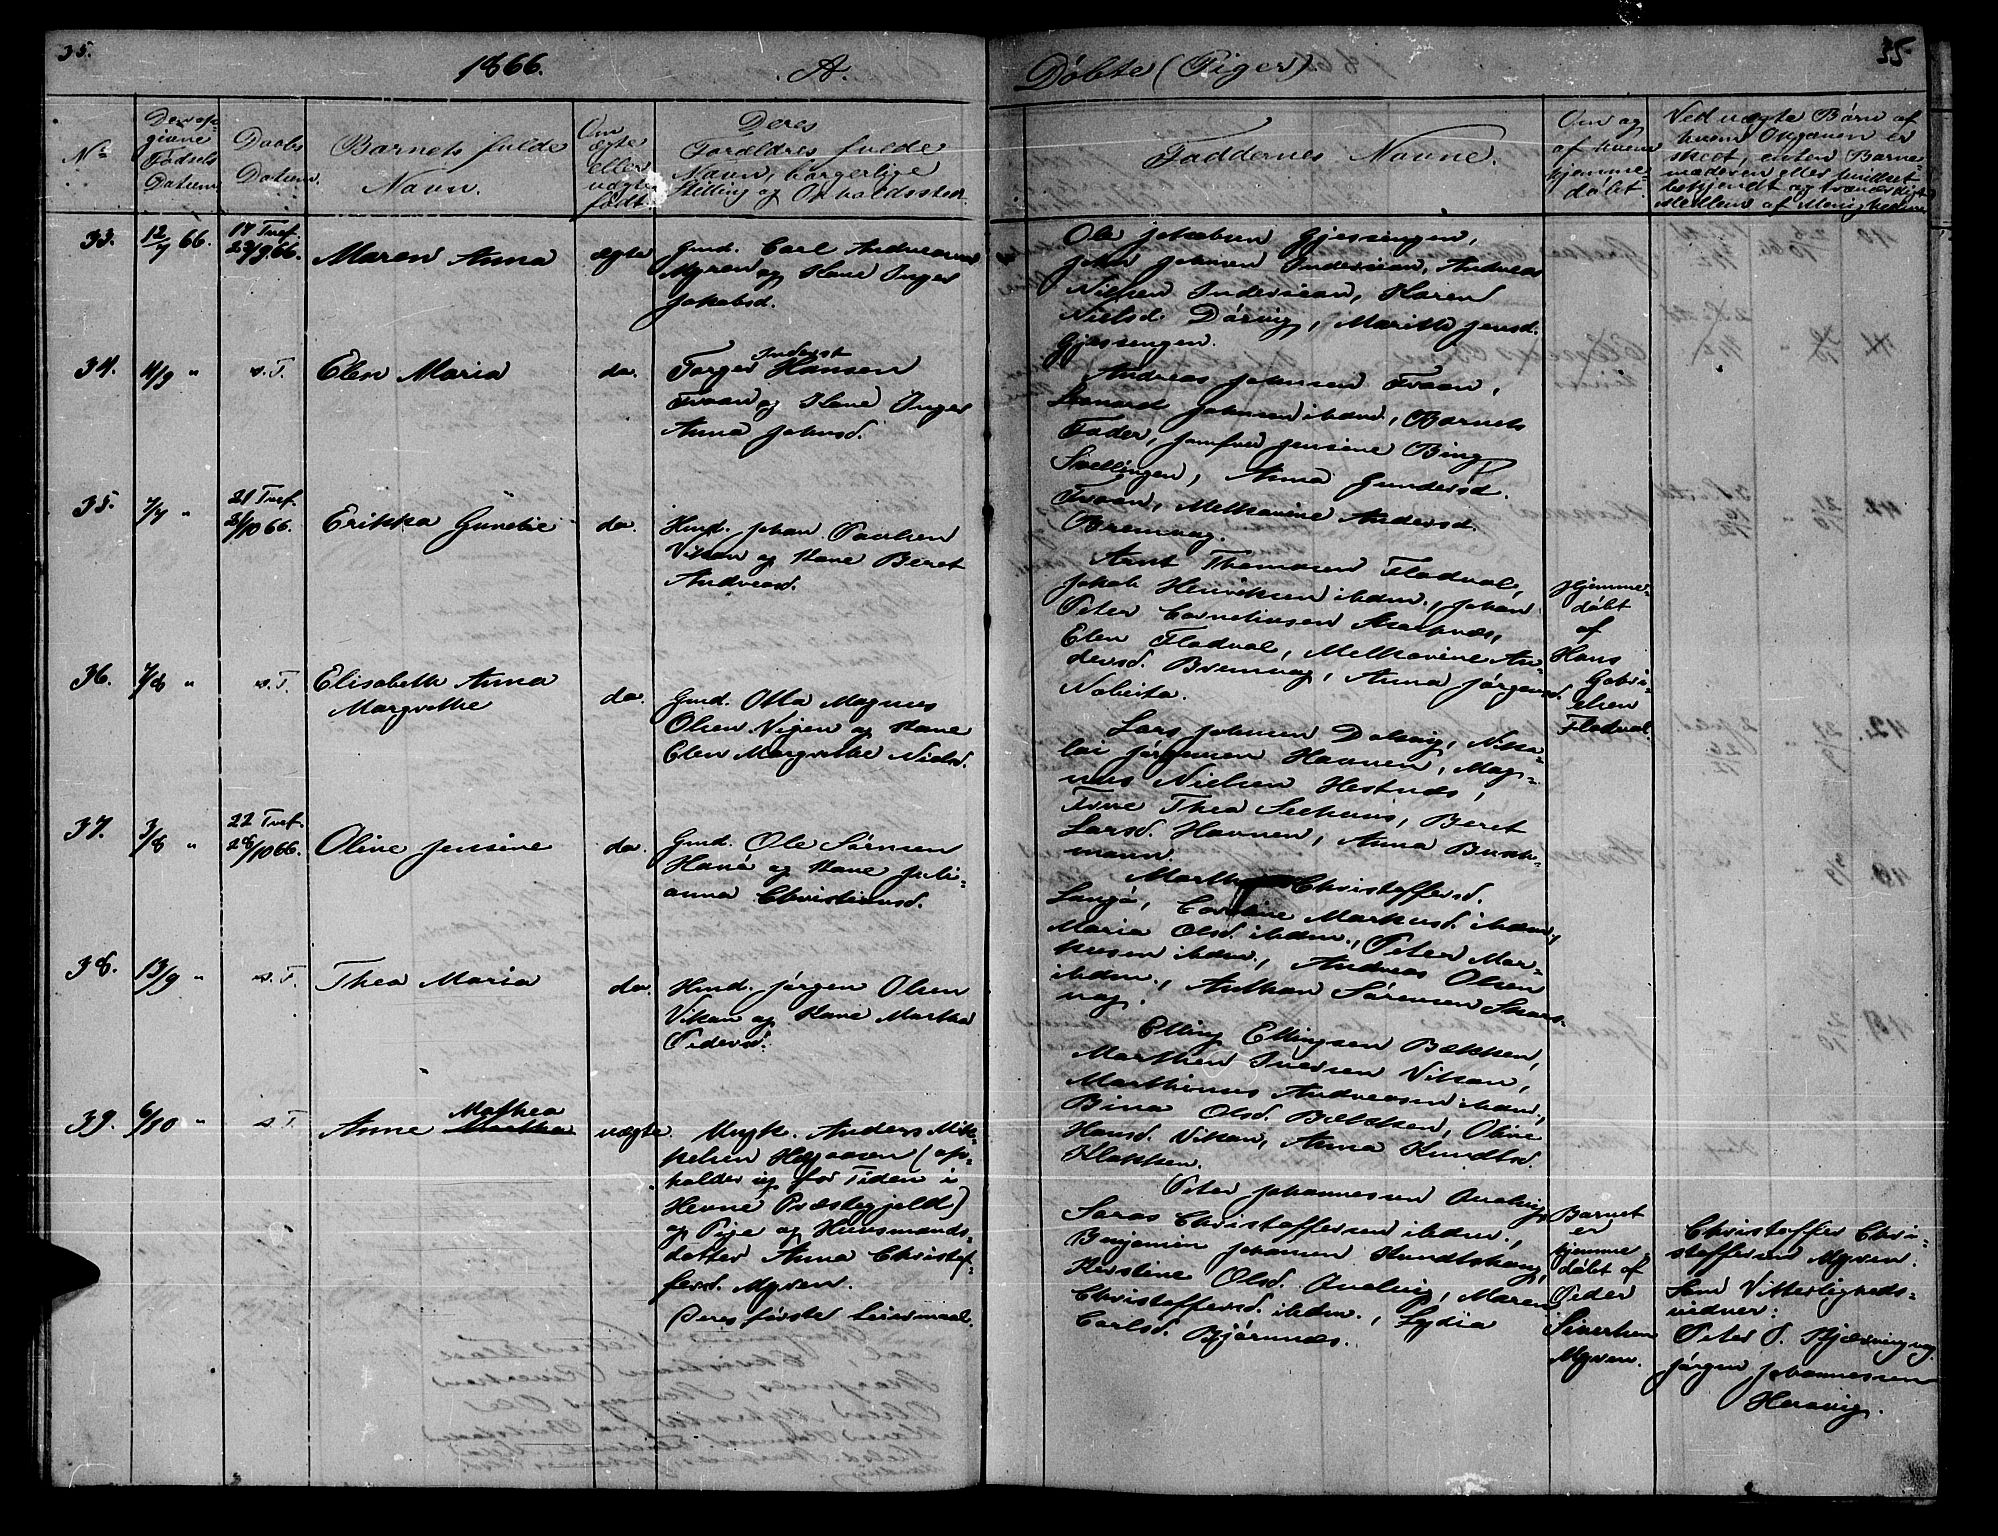 35.
1866.
A.
Døbte (Piger)
35
No
Den opgivne Fødsels Datum
Daabs Datum.
Barnets fulde Navn.
Om ægte eller uægte født.
Deres Forældres fulde Navn, borgerlige Stilling og Opholdssted.
Faddernes Navne.
Om og af hvem hjemmedøbt.
Ved uægte Børn af hvem Opgaven er skeet, enten Barnemoderen eller hvilket bekjendt og troværdigt Medlem af Menigheden
33.
12/7 66.
17 Tref.
23/9 66.
Maren Anna
ægte
Gmd. Carl Andreasen
Myren og Kone Inger
Jakobsd.
Ole Jakobsen Gjessingen,
John Johnsen Indersian, Andreas
Nielsen Indersian, Karen
Nielsd. Dørvig, Marith Jensd.
Gjessingen.
34.
11/9 "
s. T.
Elen Maria
do.
Inderst
Torger Hansen
Fraan og Kone Inger
Anna Johnsd.
Andreas Johnsen Fraan,
Leonard Johnsen ibdm., Barnets
Fader, Jomfru Jensine Bing
Svellingen, Anna Gundersd.
Fraan, Melkavine Andersd.
Bremvag.
35.
7/7 "
21 Tref.
21/10 66.
Erikka Gurebie
do.
Hmd. Johan Paulsen
Vikan og Kone Beret
Andreasd.
Arnt Thomasen Fladval,
Jakob Henriksen ibdm., Johan
Peter Corneliusen
Elen Fladval, Melkavine An-
dersd. Bremvag, Anna Jørgensd.
Nabeita.
Hjemme-
døbt
af
Hans
Gabri-
elsen
Fladval.
36.
7/8 "
s. T.
Elisabeth Anna
Margrethe
do.
Gmd. Otto Magnus
Olsen Vigen og Kone
Elen Margrethe Nielsd.
Lars Johnsen Dalvig, Nikko-
lai Jørgensen Havnen, Mag-
nus Nielsen Hestnæs,
Frue Thea Seehuus, Beret
Larsd. Havnen, Anna Busk-
mann.
37.
3/8 "
22 Tref.
28/10 66.
Oline Jensine
do.
Gmd. Ole Sørensen
Havø og Kone Juli-
anna Christiansd.
Marth Christoffersd.
Langø, Caroline Markusd. ibdm.,
Maria Olsd. ibdm., Peter Mar-
kusen ibdm., Andreas Olsen
ibdm., Anthon Sørensen Skars-
vag.
38.
13/9 "
s. T.
Thea Maria
do.
Hmd. Jørgen Olsen
Vikan og Kone Martha
Pedersd.
Elling Ellingsen Bækken,
Marthen Iversen Vikan,
Marthinus Andreasen ibdm.,
Bina Olsd. Bækken, Oline
Hansd. Vikan, Anna Knudtsd.
Klakken.
39.
6/10 "
s. T.
Anne Mathea
Martha
uægte.
Ungk. Anders Mik-
kelsen Hegaasen (op-
holder sig for Tiden i
Hevne Præstegjeld)
og Pige og Huusmands-
datter Anna Christof-
fersd. Myren.
Deres første Leiermaal.
Peter Johannessen Qualvig,
Saras Christoffersen ibdm.,
Benjamin Johansen Knudtshaug,
Kerstine Olsd. Qvalvig, Maren
Christoffersd. ibdm., Lydia
Carlsd. Bjørnnæs.
Barnet
er
hjemme-
døbt af
Peder
Sivertsen
Myren.
Christoffer Chri-
stoffersen Myren.
Som Vitterligheds-
vidner:
Peter P. Kjærringvag
Jørgen Johannessen
Hernvig.